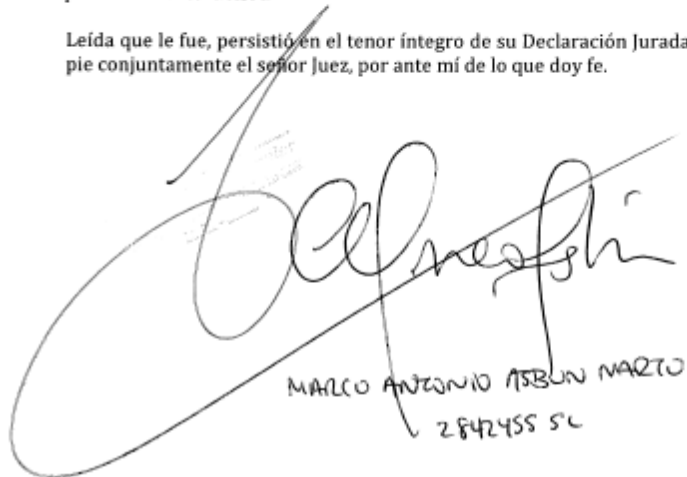 Leída que le fue, persistió en el tenor íntegro de su Declaración Jurada
pie conjuntamente el señor Juez, por ante mí de lo que doy fe.
MARCO ANTONIO ASBUN MARZO
2842455 SC